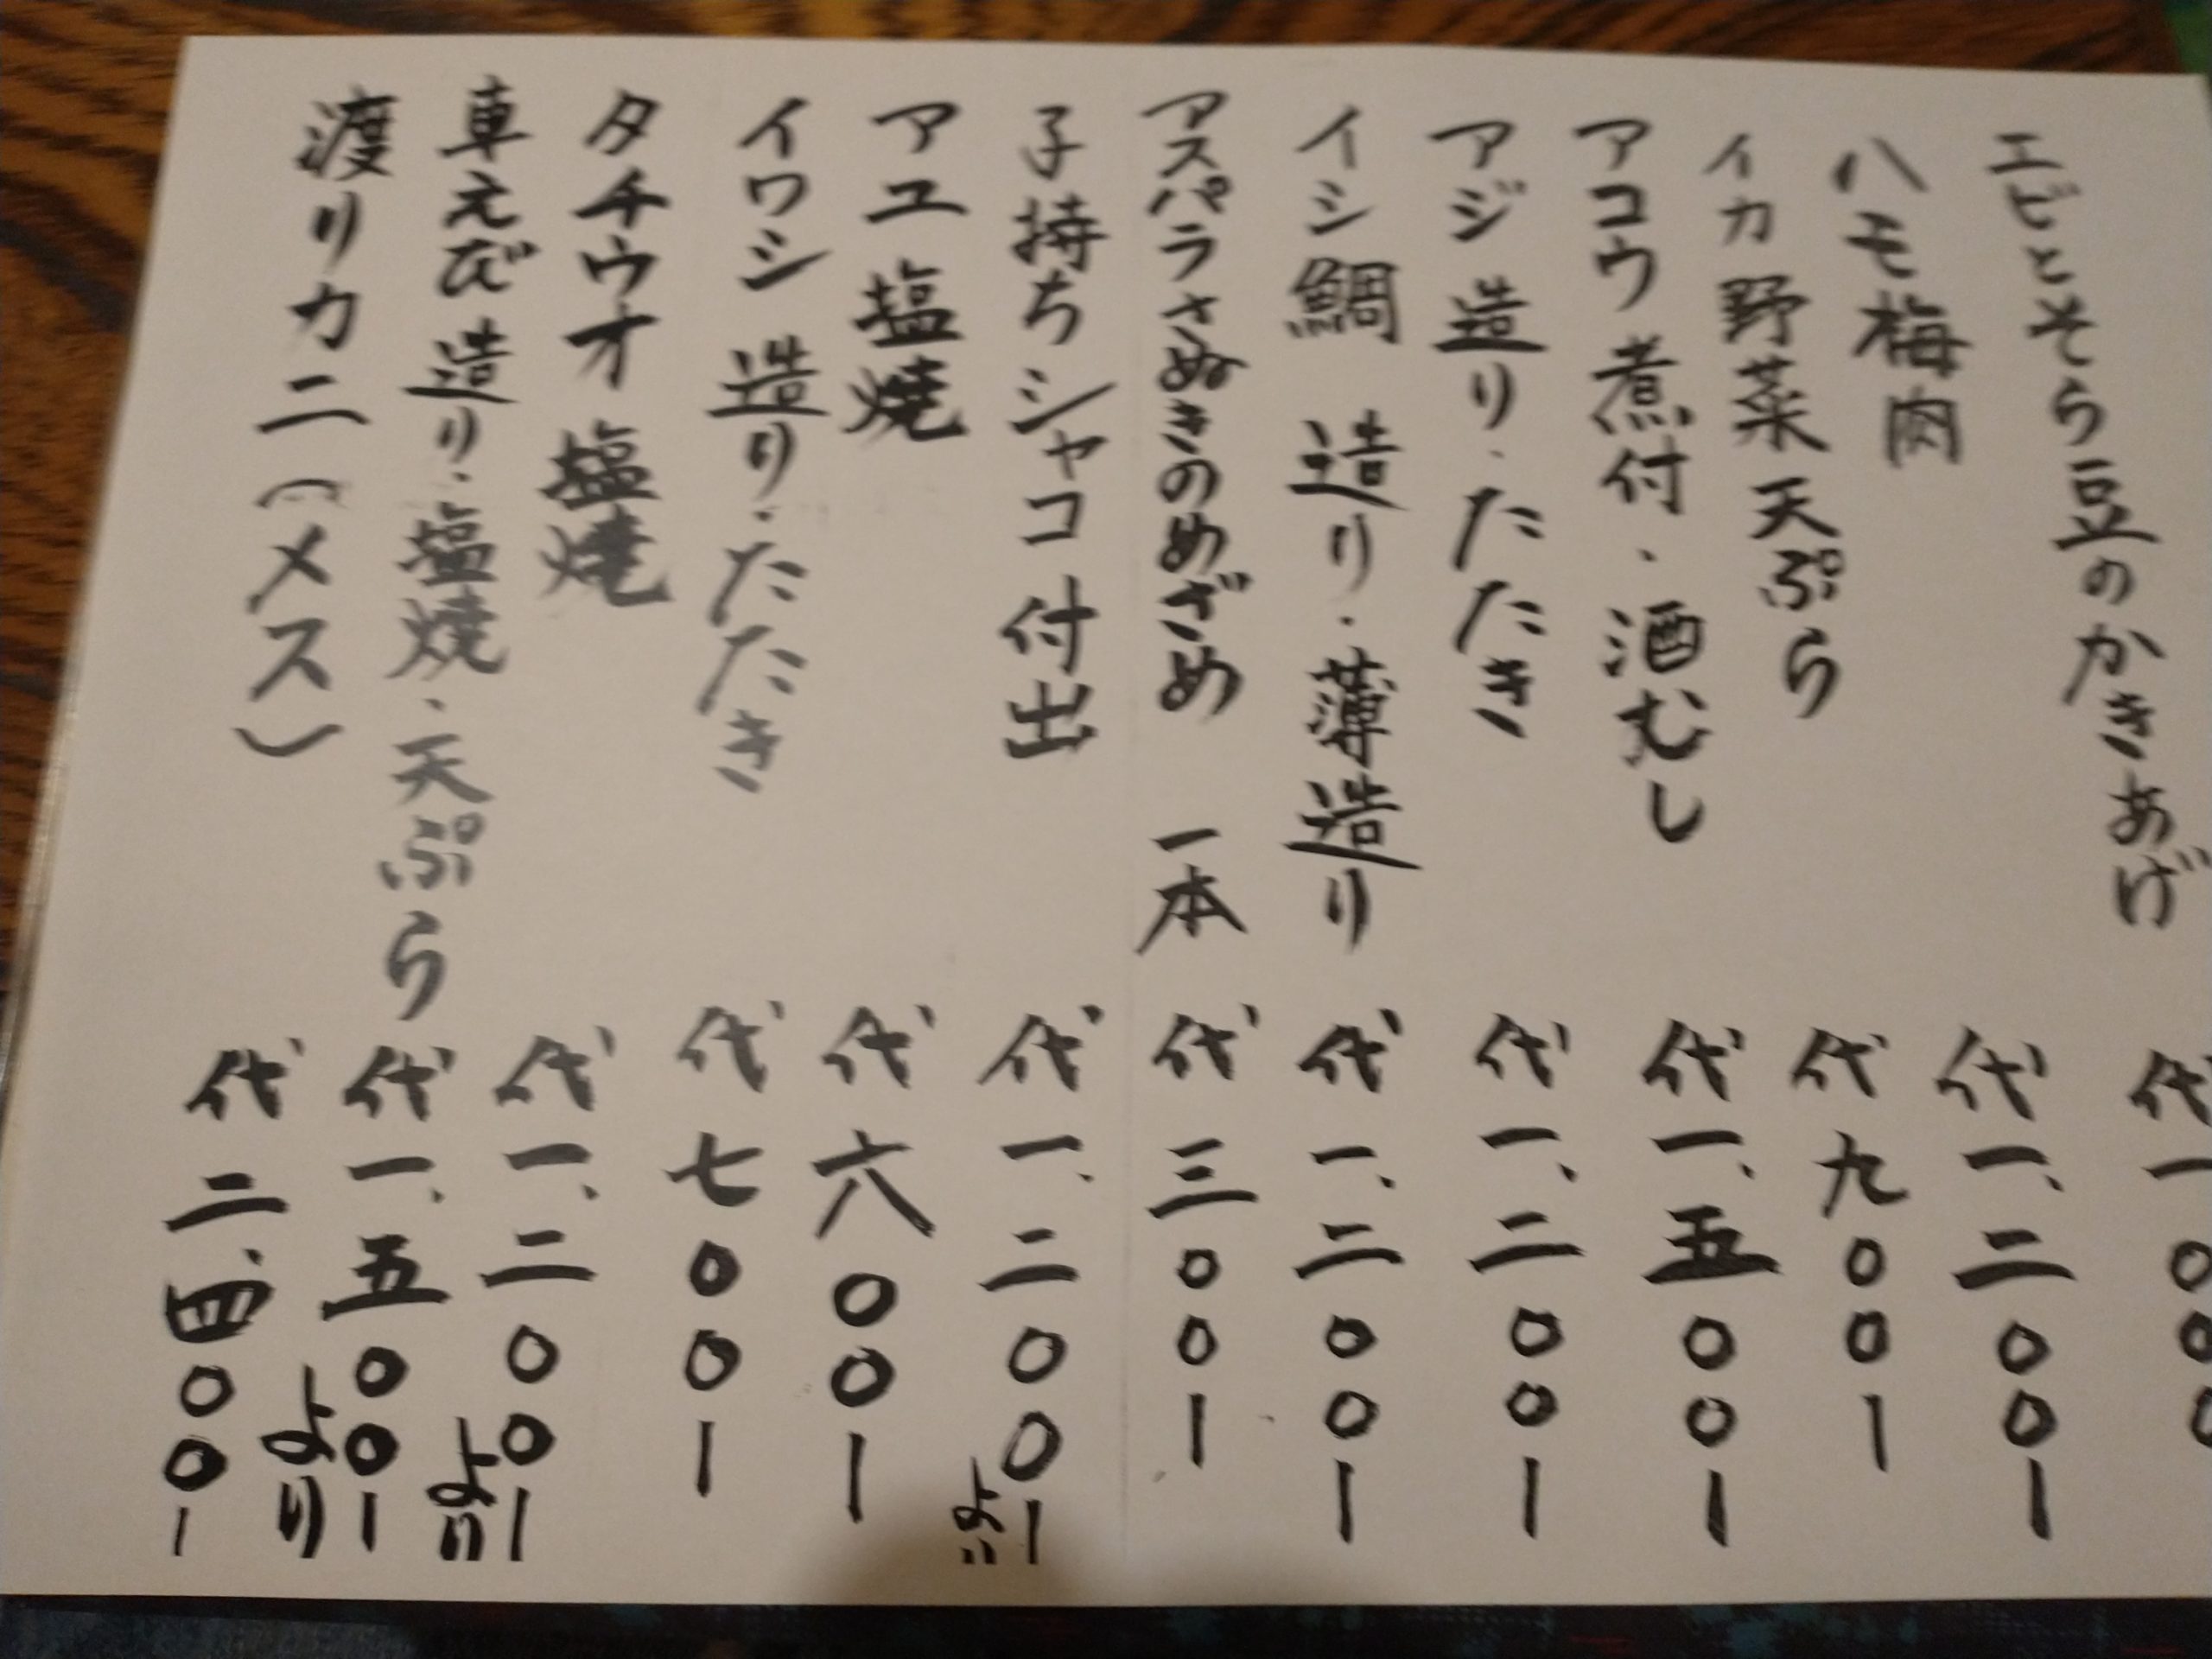 エビとそら豆のかきあげ 代一、00
ハモ梅肉 代一、二00ー
イカ野菜天ぷら 代九00ー
アコウ煮付・酒むし 代一、五00ー
アジ造り・たたき 代一、二00ー
イシ鯛 造り・薄造り 代一、二00ー
アスパラさぬきのめざめ 一本 代三00ー
子持ちシャコ付出 代一、二00ーより
アユ塩焼 代六00ー
イワシ造り・たたき 代七00ー
タチウオ塩焼 代一、二00ーより
車えび造り・塩焼・天ぷら 代一、五00ーより
渡リカニ(メス) 代二、四00ー